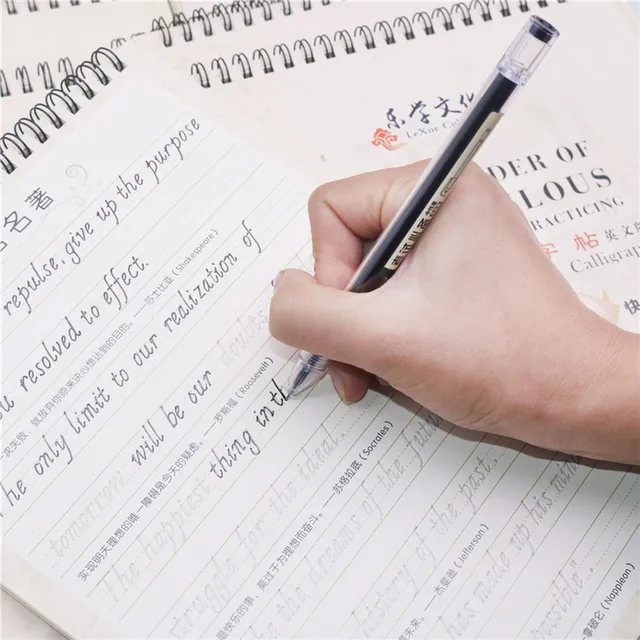 名著
repulse, give up the purpose
resolved to effect.
一次失败，就放弃 决心想达到的目的。——莎士比亚（Shakespeare）
he only limit to our realization of
tomorrow will be our doubts
实现明天理想的唯一障碍是今天的疑虑。——罗斯福（Roosevelt）
The happiest thing in th
struggle for the ideal.
最快乐的事，莫过于为理想而奋斗。——苏格拉底（Socrates）
the dreams of the futu
history of the past.
未来。——杰斐逊（Jefferson）
has made up his min
possible".
拿破仑（Nappleon）
乐学文化
LeXue Cu
DER OF
LOUS
PRACTICING
字帖 英文
Calligrap
快